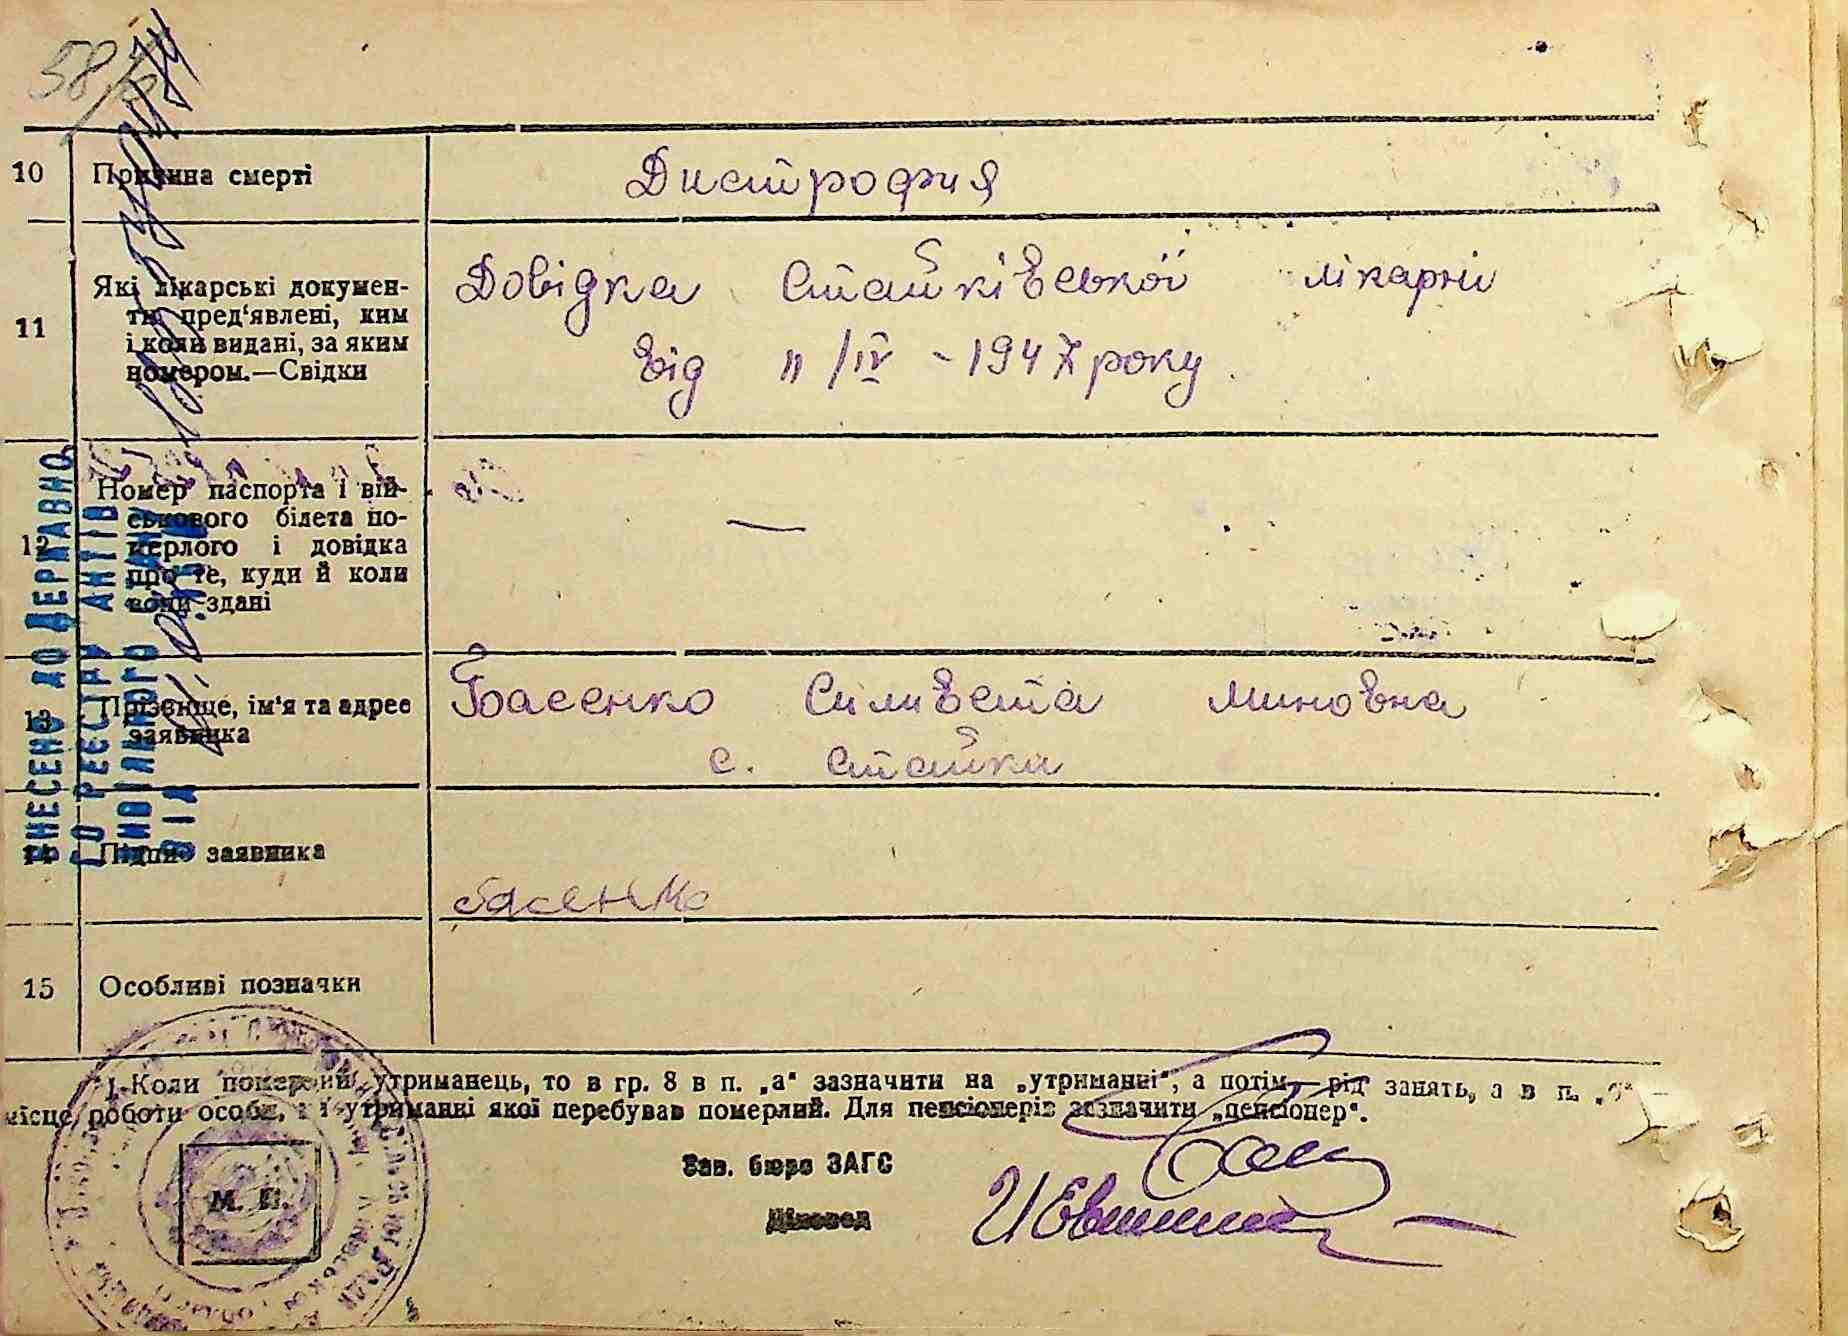 58
10 Причина смерті Дистрофия
11 Які лікарські докумен-
ти пред'явлені, ким
і коли видані, за яким
номером.—Свідки
Довідка Стайківської лікарні
від 11/IV - 1947 року.
12 Номер паспорта і вій-
ськового білета по-
мерлого і довідка
про те, куди й коли
вони здані
—
13 Прізвище, ім'я та адрес
заявника
Басенко Сіливеста Миновна
с. Стайки
14 Підпис заявника
Басенко
15 Особливі позначки
ВНЕСЕНО ДО ДЕРЖАВНО
ГО РЕЄСТРУ АКТІВ
ЦИВІЛЬНОГО СТАНУ
ЗІА
1. Коли померлий утриманець, то в гр. 8 в п. „а" зазначити на „утриманні", а потім—рід занять, а в п. „б"
місце роботи особи, на утриманні якої перебував померлий. Для пенсіонерів зазначити „пенсіонер".
Зав. бюро ЗАГС
Діловод
М. П.